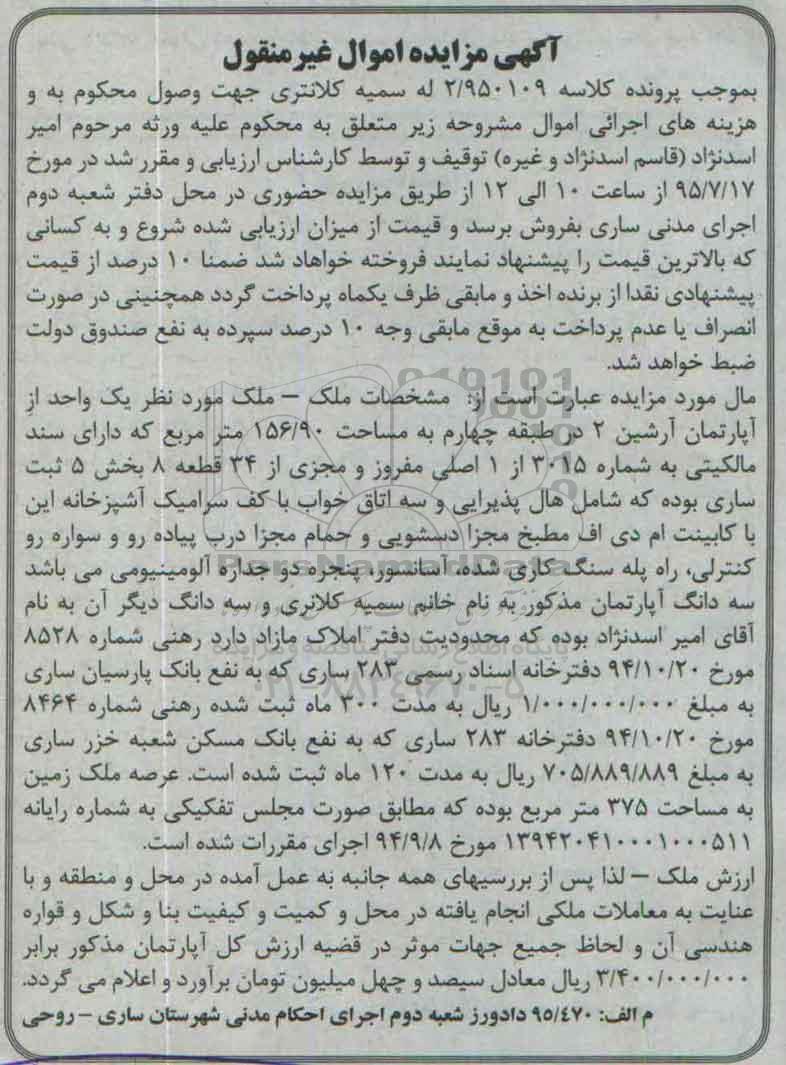 آگهی مزایده اموال غیرمنقول
بموجب پرونده کلاسه ۲/۹۵۰۱۰۹ له سمیه کلانتری جهت وصول محکوم به و
هزینه های اجرائی اموال مشروحه زیر متعلق به محکوم علیه ورثه مرحوم امیر
اسدنژاد (قاسم اسدنژاد و غیره) توقیف و توسط کارشناس ارزیابی و مقرر شد در مورخ
۹۵/۷/۱۷ از ساعت ۱۰ الی ۱۲ از طریق مزایده حضوری در محل دفتر شعبه دوم
اجرای مدنی ساری بفروش برسد و قیمت از میزان ارزیابی شده شروع و به کسانی
که بالاترین قیمت را پیشنهاد نمایند فروخته خواهاد شد ضمنا ۱۰ درصد از قیمت
پیشنهادی نقدا از برنده اخذ و مابقی ظرف یکماه پرداخت گردد همچنینی در صورت
انصراف یا عدم پرداخت به موقع مابقی وجه ۱۰ درصد سپرده به نفع صندوق دولت
ضبط خواهد شد.
مال مورد مزایده عبارت است از: مشخصات ملک – ملک مورد نظر یک واحد از
آپارتمان آرشین ۲ در طبقه چهارم به مساحت ۱۵۶/۹۰ متر مربع که دارای سند
مالکیتی به شماره ۳۰۱۵ از ۱ اصلی مفروز و مجزی از ۳۴ قطعه ۸ بخش ۵ ثبت
ساری بوده که شامل هال پذیرایی و سه اتاق خواب با کف سرامیک آشپزخانه این
با کابینت ام دی اف مطبخ مجزا دسشویی و حمام مجزا درب پیاده رو و سواره رو
کنترلی، راه پله سنگ کاری شده، آسانسور، پنجره دو جداره آلومینیومی می باشد
سه دانگ آپارتمان مذکور به نام خانم سمیه کلانری و سه دانگ دیگر آن به نام
آقای امیر اسدنژاد بوده که محدودیت دفتر املاک مازاد دارد رهنی شماره ۸۵۲۸
مورخ ۹۴/۱۰/۲۰ دفترخانه اسناد رسمی ۲۸۳ ساری که به نفع بانک پارسیان ساری
به مبلغ ۱/۰۰۰/۰۰۰/۰۰۰ ریال به مدت ۳۰۰ ماه ثبت شده رهنی شماره ۸۴۶۴
مورخ ۹۴/۱۰/۲۰ دفترخانه ۲۸۳ ساری که به نفع بانک مسکن شعبه خزر ساری
به مبلغ ۷۰۵/۸۸۹/۸۸۹ ریال به مدت ۱۲۰ ماه ثبت شده است. عرصه ملک زمین
به مساحت ۳۷۵ متر مربع بوده که مطابق صورت مجلس تفکیکی به شماره رایانه
۱۳۹۴۲۰۴۱۰۰۰۱۰۰۰۵۱۱ مورخ ۹۴/۹/۸ اجرای مقررات شده است.
ارزش ملک – لذا پس از بررسیهای همه جانبه به عمل آمده در محل و منطقه و با
عنایت به معاملات ملکی انجام یافته در محل و کمیت و کیفیت بنا و شکل و قواره
هندسی آن و لحاظ جمیع جهات موثر در قضیه ارزش کل آپارتمان مذکور برابر
۳/۴۰۰/۰۰۰/۰۰۰ ریال معادل سیصد و چهل میلیون تومان برآورد و اعلام می گردد.
م الف: ۹۵/٤۷۰ دادورز شعبه دوم اجرای احکام مدنی شهرستان ساری – روحی
ParsNamadData
پایگاه اطلاع رسانی مناقصه و مزایده
۰۲۱-۸۸۳۴۹۶۷۰-۵